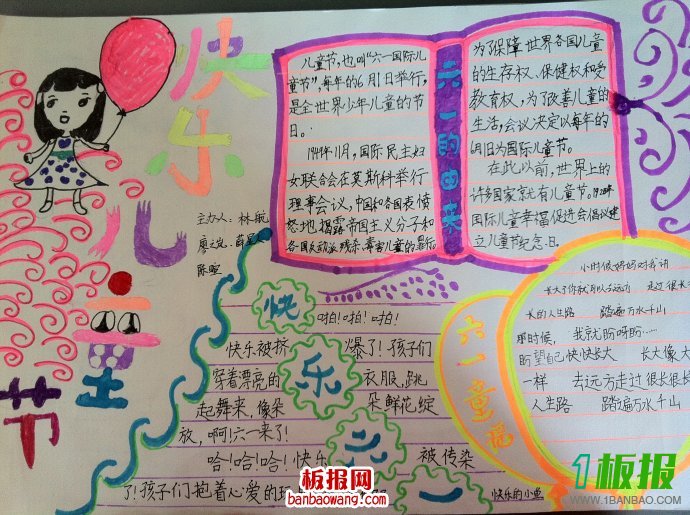 快
乐
儿
童
节
主办人: 林航
陈煊
六一的由来
儿童节,也叫“六一国际儿
童节”,每年的6月1日举行,
是全世界少年儿童的节
日。
1949年11月,国际民主妇
女联合会在莫斯科举行
理事会议,中国和各国代表愤
怒地揭露帝国主义分子和
各国反动派残杀、毒害儿童的罪行。
为了保障世界各国儿童
的生存权、保健权和受
教育权,为了改善儿童的
生活,会议决定以每年的
6月日为国际儿童节。
在此以前,世界上的
许多国家就有儿童节。
国际儿童幸福促进会倡议建
立儿童节纪念日。
快乐六一
啪!啪!啪!
快乐被挤爆了!孩子们
穿着漂亮的衣服,跳
起舞来,像朵朵鲜花绽
放,啊!六一来了!
哈!哈!哈!快乐被传染
了!孩子们抱着心爱的
快乐的小鱼
六一童谣
小时候妈妈对我讲
长大了你就可以去远方 走过很长
长的人生路 踏遍万水千山
那时候,我就盼呀盼……
盼望自己快快长大 长大像大
一样 去远方走过很长很长
人生路 踏遍万水千山
板报网
banbaowang.com
1板报
WWW.1BANBAO.COM